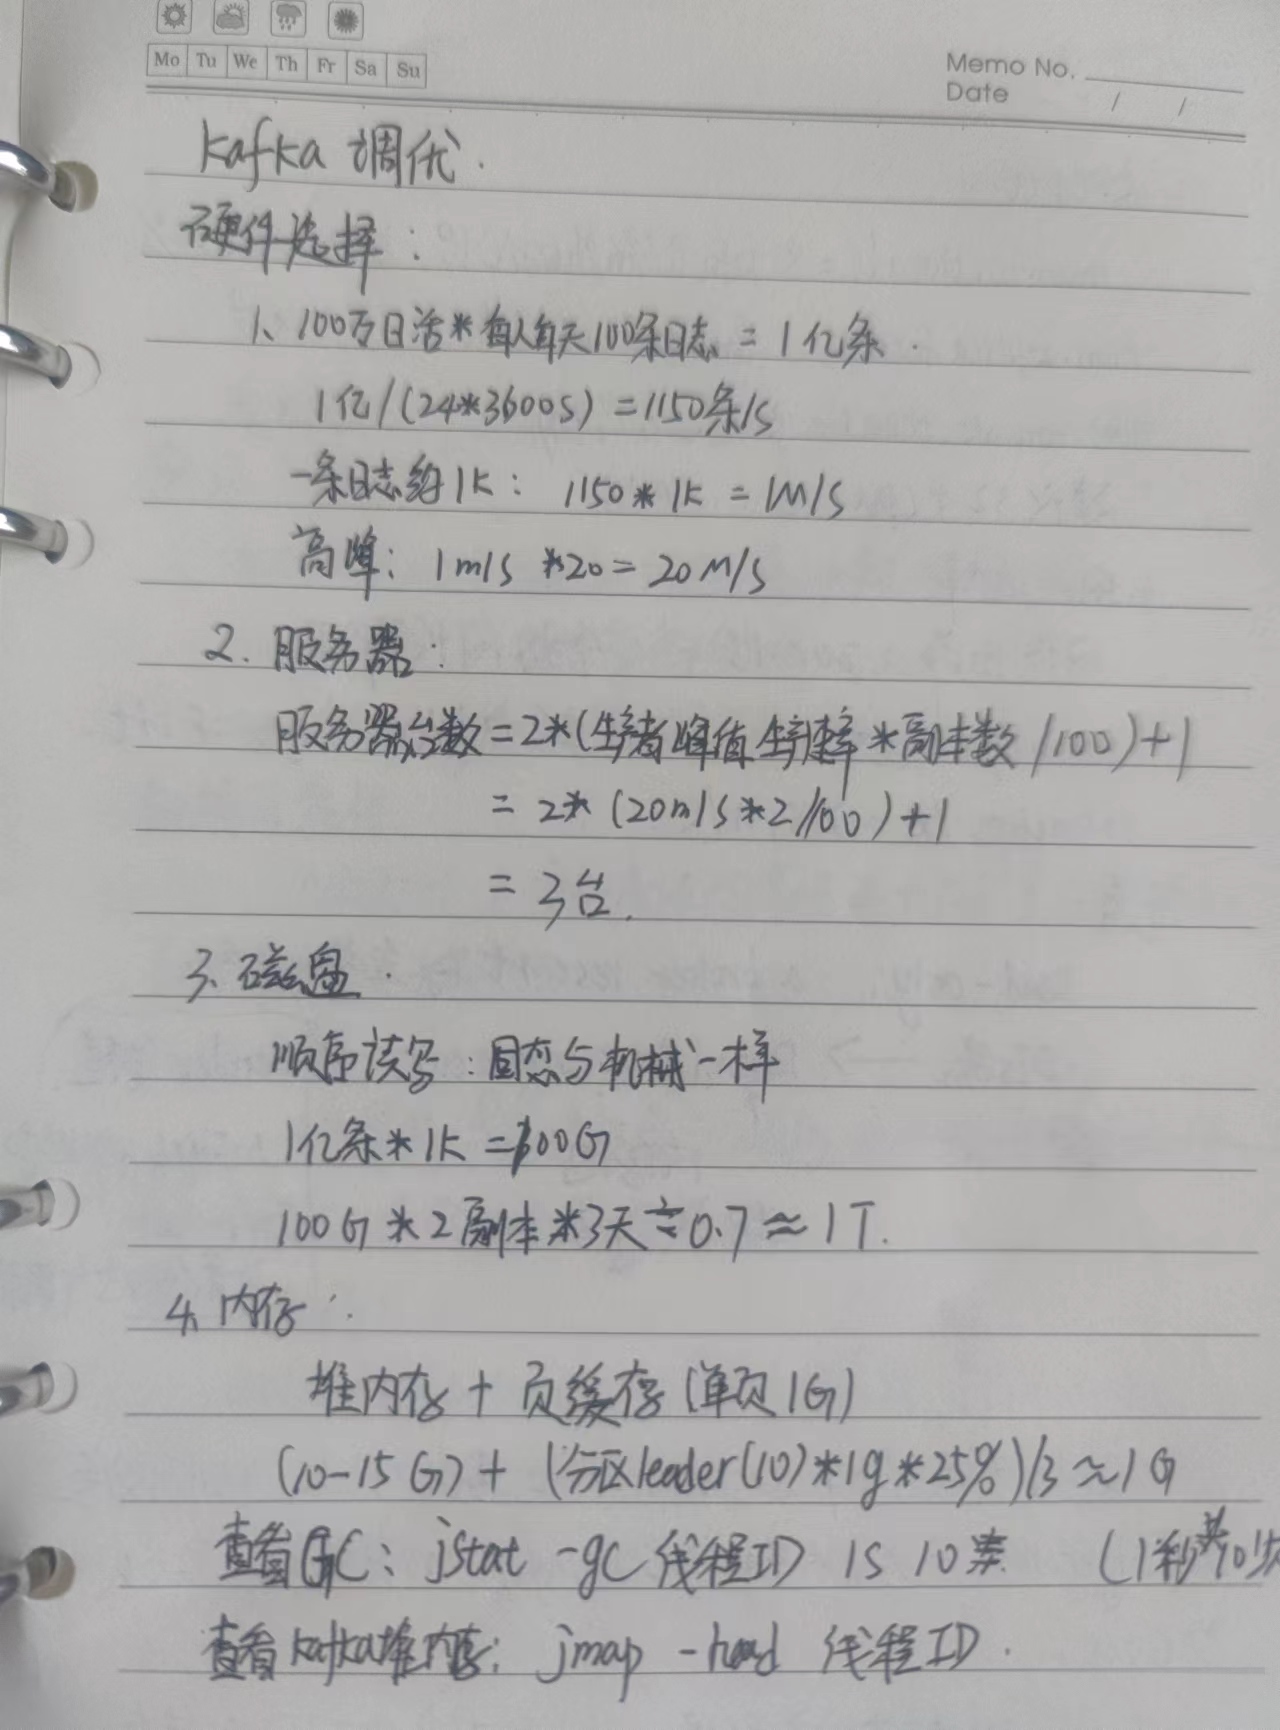 Mo Tu We Th Fr Sa Su
Memo No.
Date / /
kafka 调优.
硬件选择:
1、100万日活*每人每天100条日志 = 1亿条.
1亿/(24*3600s) = 1150条/s
一条日志约1K: 1150*1K = 1M/s
高峰: 1m/s *20 = 20M/s
2. 服务器:
服务器台数=2*(生产者峰值生产速率*副本数/100)+1
= 2*(20m/s*2/100)+1
= 3台.
3、磁盘.
顺序读写:固态与机械一样
1亿条*1K =100G
100G*2副本*3天÷0.7≈1T.
4、内存:
堆内存 + 页缓存(单页1G)
(10-15G)+(分区leader(10)*1g*25%)/3≈1G
查看GC: jstat -gc 线程ID 1s 10 (1秒共10次
查看kafka堆内存: jmap 线程ID.